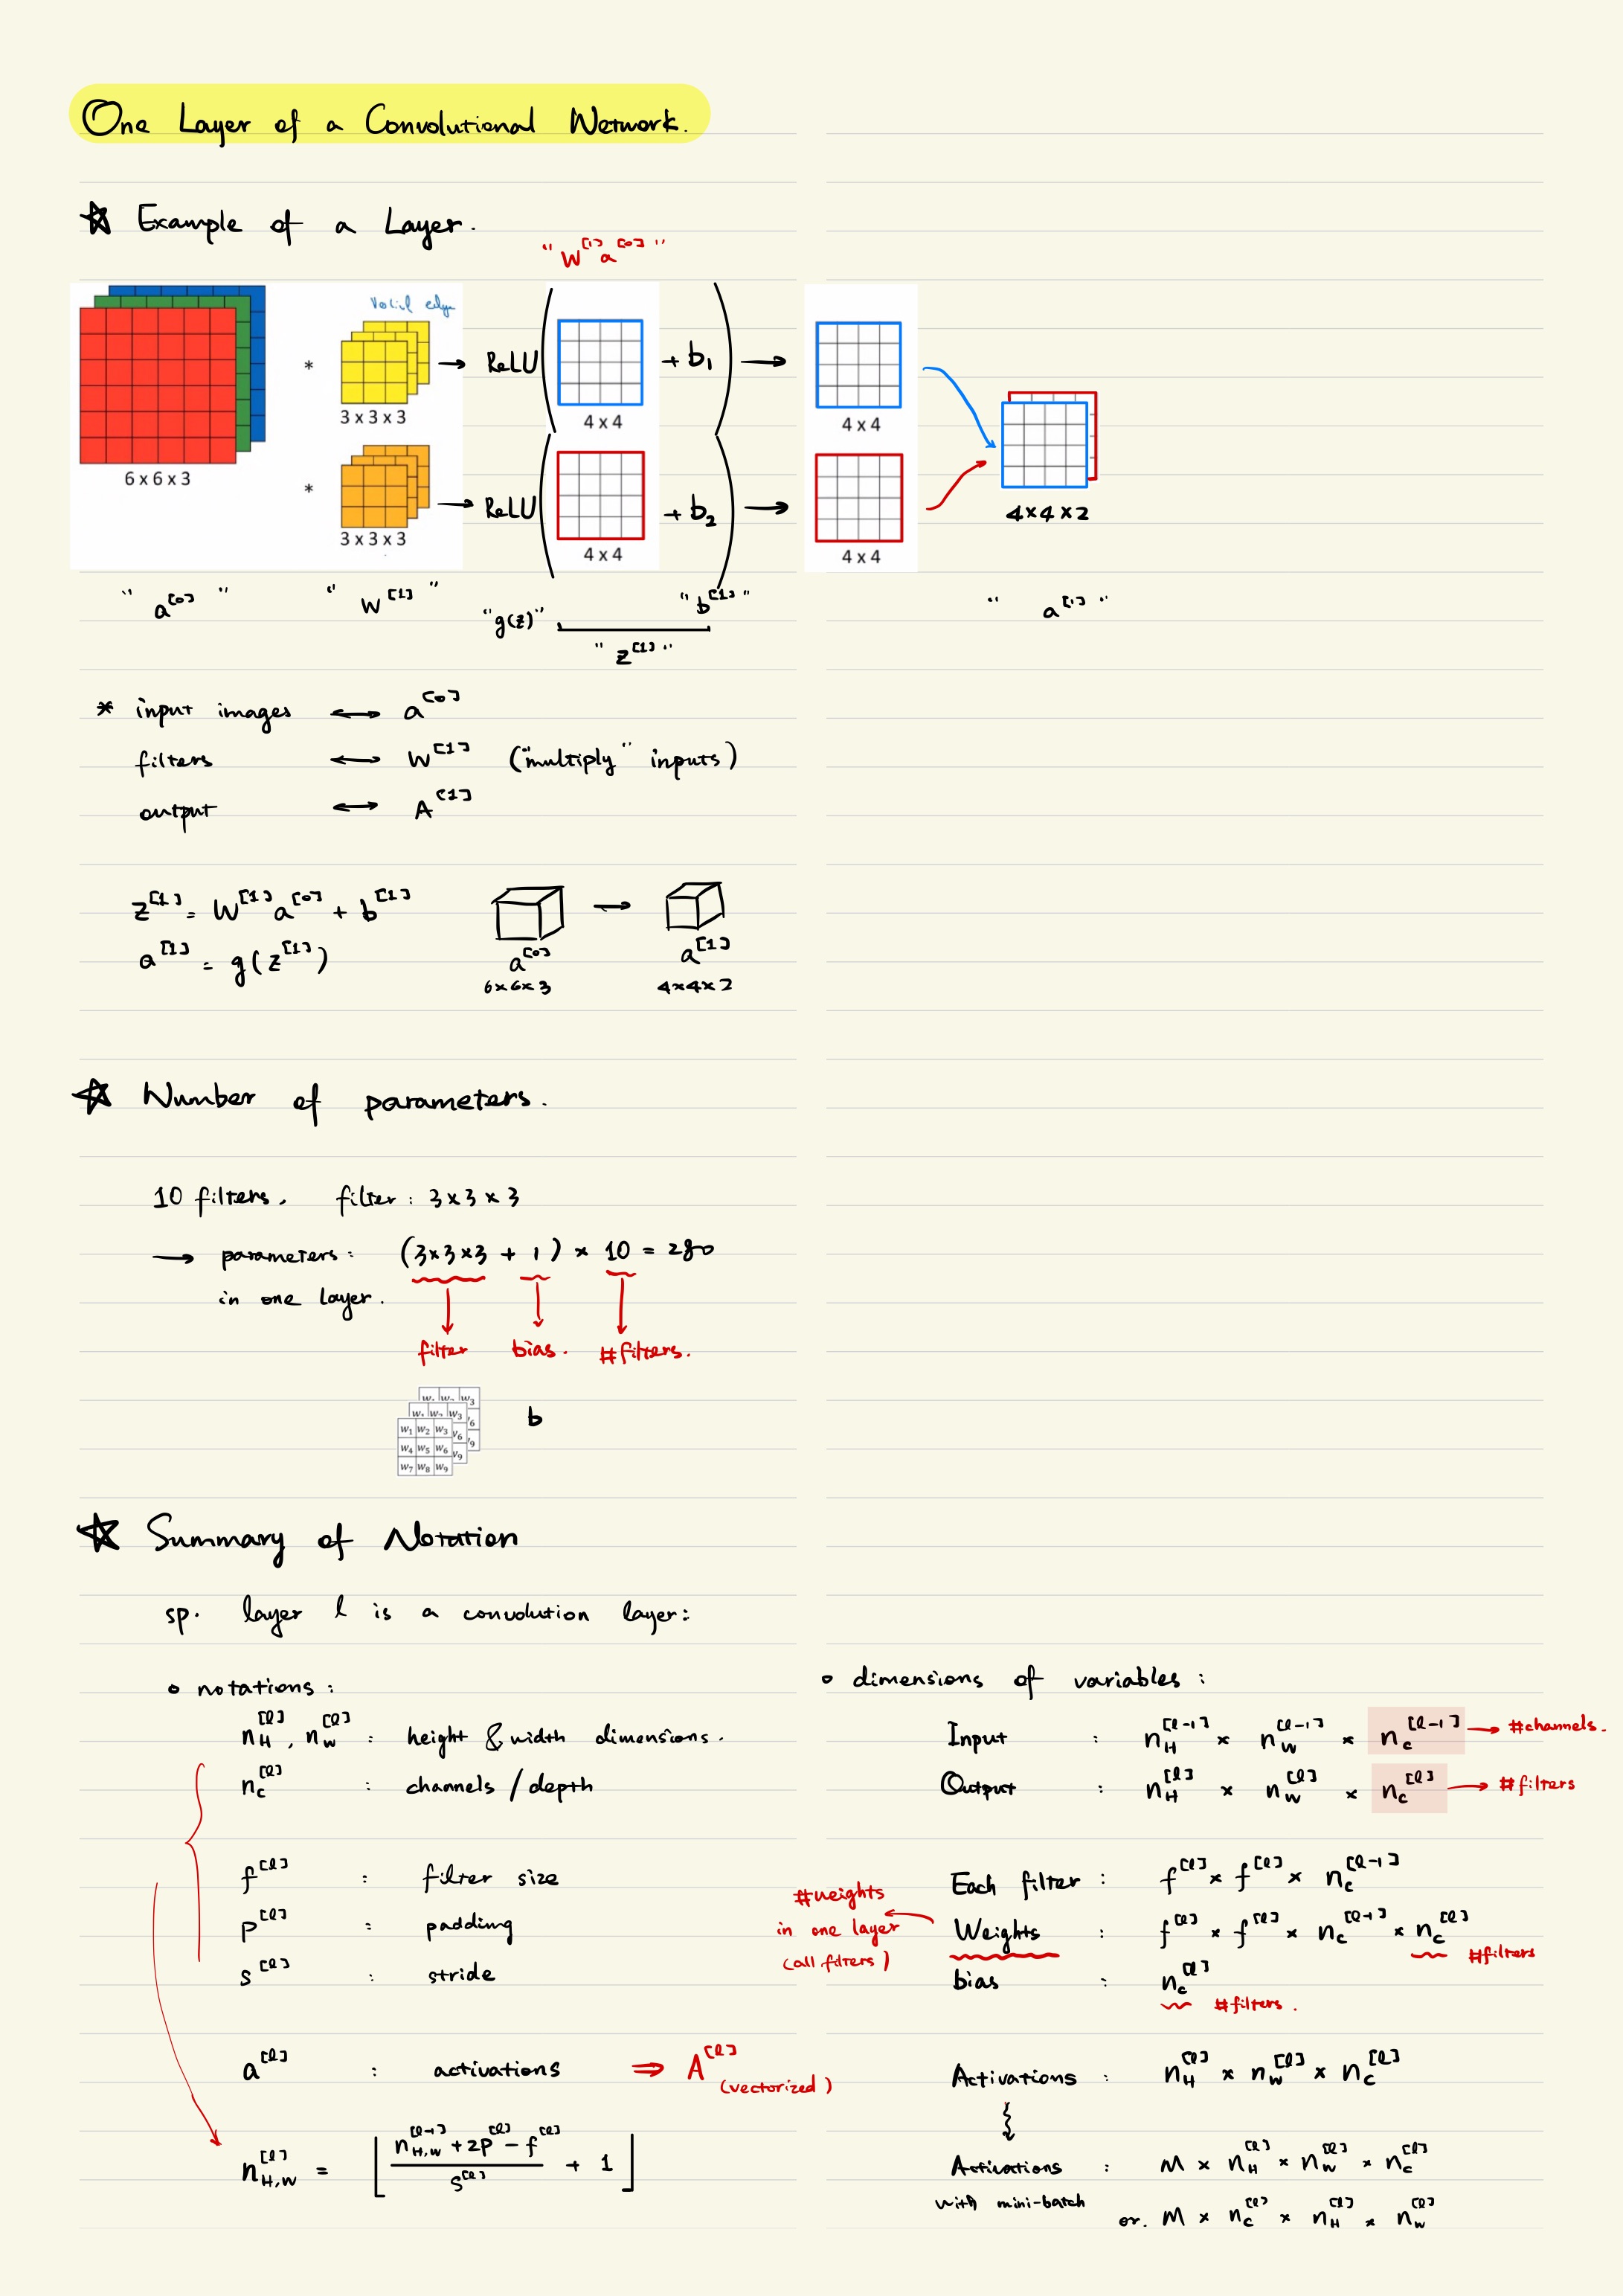 One Layer of a Convolutional Network.
☆ Example of a Layer.
" W[1] a[0] "
Vertical edge
* → ReLU ( + b1 ) →
3 x 3 x 3
4 x 4
4 x 4
6 x 6 x 3
* → ReLU ( + b2 ) →
4×4×2
3 x 3 x 3
4 x 4
4 x 4
" a[0] " " W[1] " "g(z)" "b[1]" " a[1] "
" z[1] "
* input images ↔ a[0]
filters ↔ W[1] ("multiply" inputs)
output ↔ A[1]
z[1] = W[1] a[0] + b[1] →
a[1] = g(z[1]) a[0] a[1]
6×6×3 4×4×2
☆ Number of parameters.
10 filters. filter: 3×3×3
→ parameters: (3×3×3 + 1) × 10 = 280
in one layer.
filter bias. #filters.
w1 w2 w3
w1 w2 w3 w6
w1 w2 w3 w6 w9
w4 w5 w6 w9
w7 w8 w9
b
☆ Summary of Notation
sp. layer l is a convolution layer:
o notations:
nH[l], nW[l] : height & width dimensions.
nc[l] : channels / depth
f[l] : filter size
p[l] : padding
s[l] : stride
a[l] : activations ⇒ A[l]
(vectorized)
nH,W[l] = ⌊ (nH,W[l-1] + 2p[l] - f[l]) / s[l] + 1 ⌋
o dimensions of variables:
Input : nH[l-1] × nW[l-1] × nc[l-1] → #channels.
Output : nH[l] × nW[l] × nc[l] → #filters
Each filter : f[l] × f[l] × nc[l-1]
#weights
in one layer
(all filters)
Weights : f[l] × f[l] × nc[l-1] × nc[l] #filters
bias : nc[l]
#filters.
Activations : nH[l] × nW[l] × nc[l]
Activations : M × nH[l] × nW[l] × nc[l]
with mini-batch
or. M × nc[l] × nH[l] × nW[l]